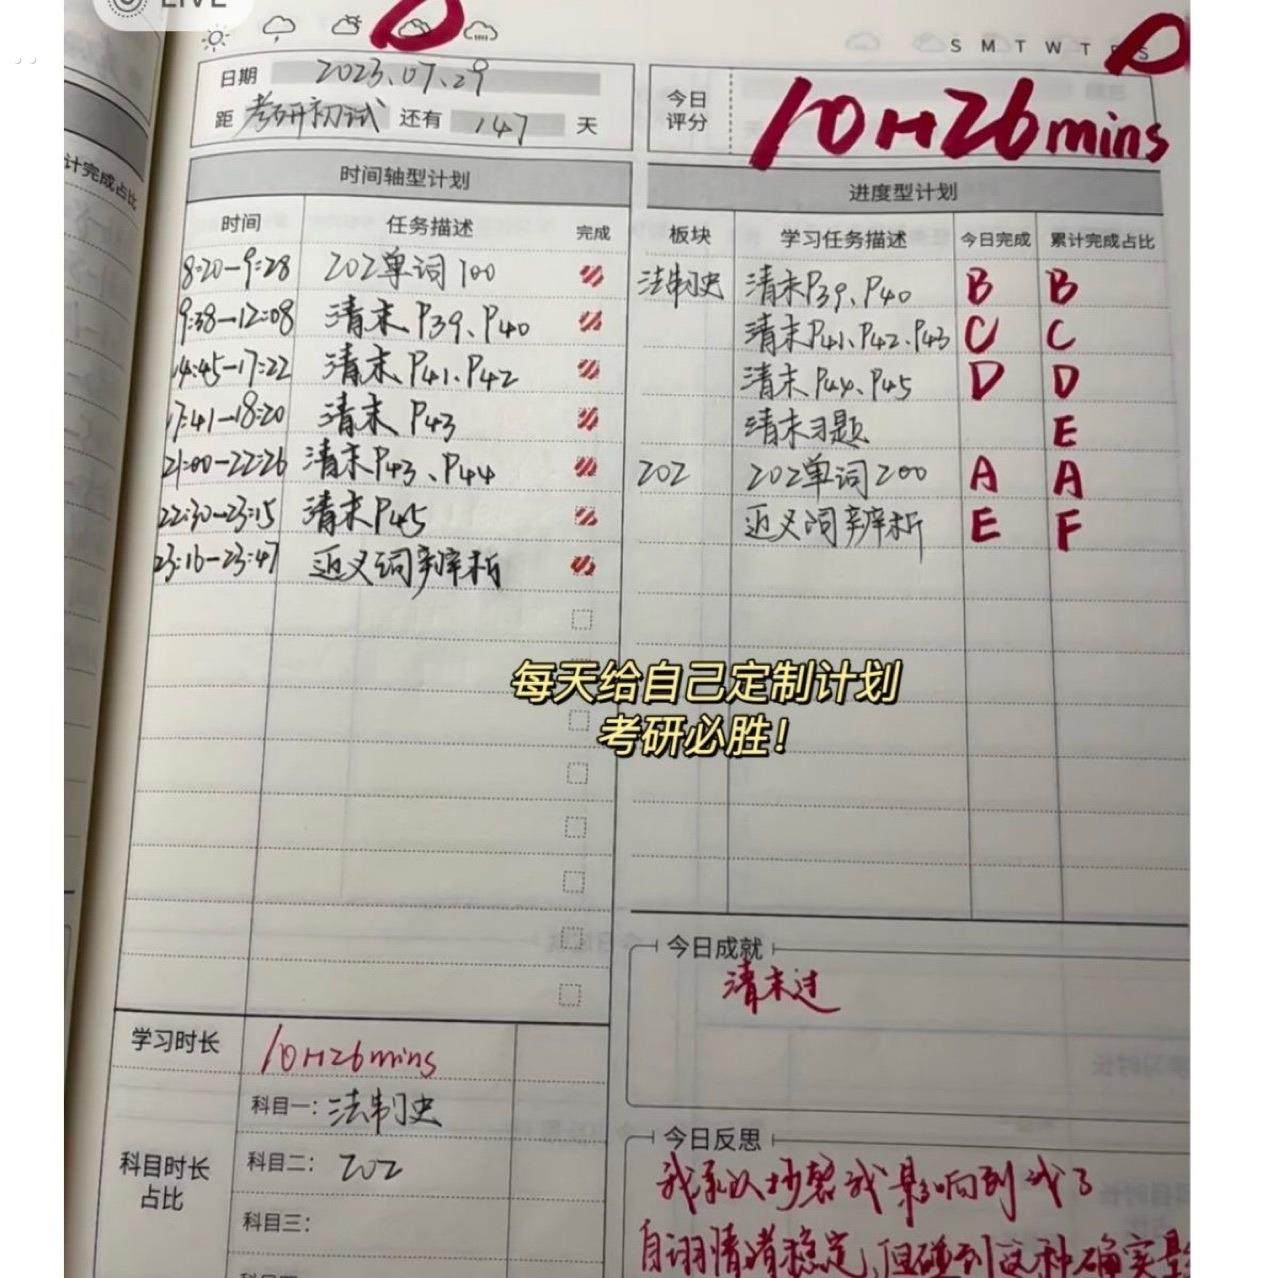 LIVE
S M T W T F S
日期 2023.07.29
距 考研初试 还有 147 天
今日评分 10H26mins
时间轴型计划
时间 任务描述 完成
8:20-9:28 202单词100
9:38-12:08 清末P39、P40
14:45-17:22 清末P41、P42
17:41-18:20 清末P43
21:00-22:26 清末P43、P44
22:30-23:15 清末P45
23:16-23:47 近义词辨析
进度型计划
板块 学习任务描述 今日完成 累计完成占比
法制史 清末P39、P40 B B
清末P41、P42、P43 C C
清末P44、P45 D D
清末习题 E
202 202单词200 A A
近义词辨析 E F
每天给自己定制计划
考研必胜！
今日成就
清末过
学习时长 10H26mins
科目时长占比
科目一：法制史
科目二：202
科目三：
今日反思
我承认抄袭我影响到我了
自诩情绪稳定，但碰到这种确实是
计完成占比